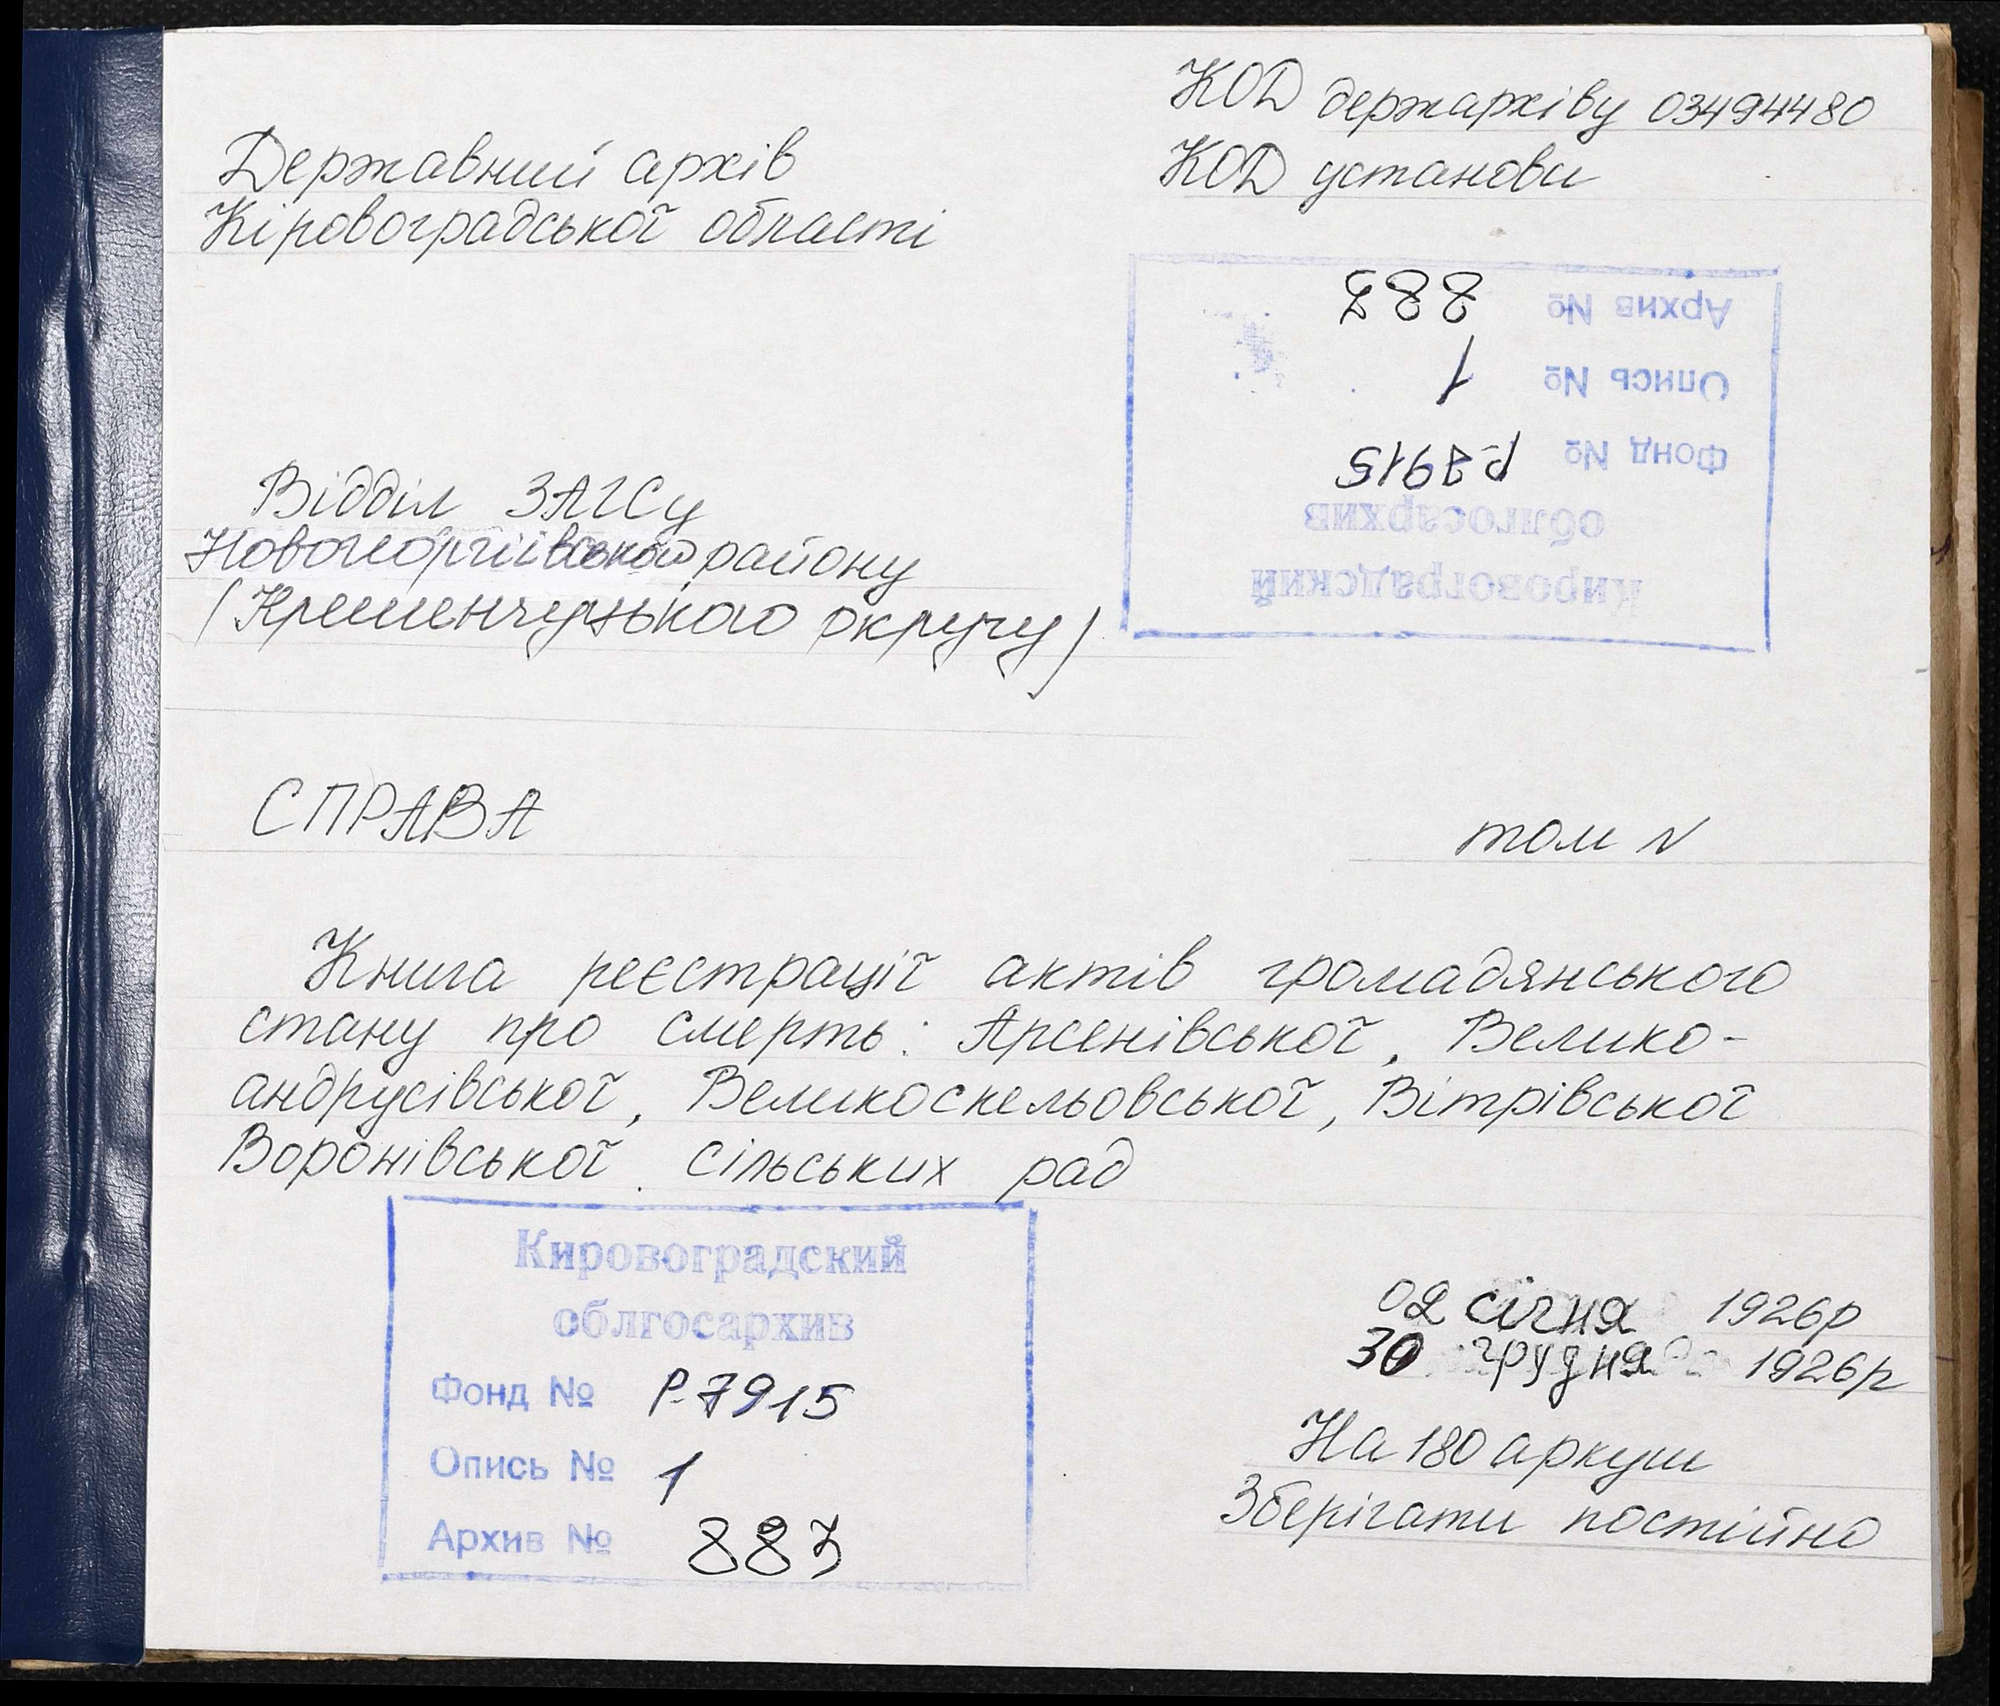 КОД держархіву 03494480
Державний архів
КОД установи
Кіровоградської області
Кировоградский
облгосархив
Фонд № Р-7915
Опись № 1
Архив № 883
Відділ ЗАГСу
Новогеоргіївського району
(Кременчуцького округу)
СПРАВА том N
Книга реєстрації актів громадянського
стану про смерть: Арсенівської, Велико-
андрусівської, Великоскельовської, Вітрівської
Воронівської. сільських рад
Кировоградский
облгосархив
Фонд № Р-7915
Опись № 1
Архив № 883
02 січня 1926р
30 грудня 1926р
На 180 аркуш
Зберігати постійно